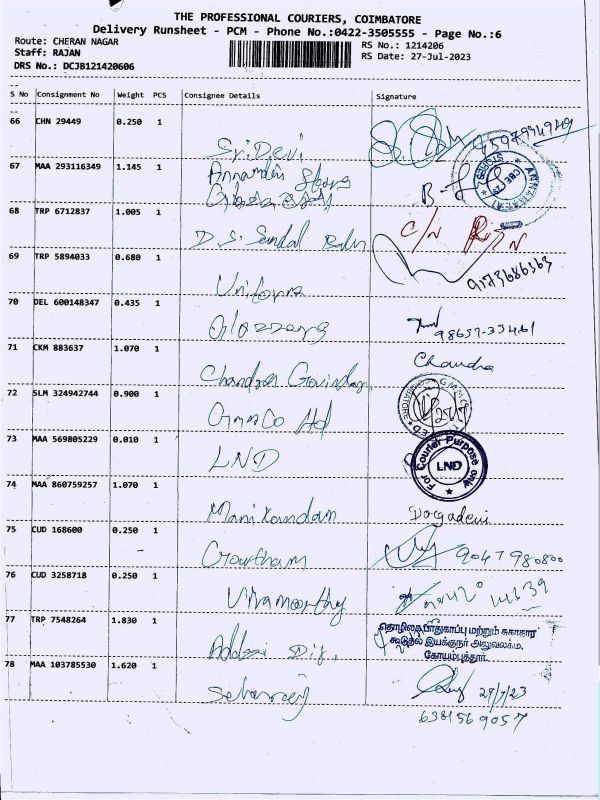 THE PROFESSIONAL COURIERS, COIMBATORE
Delivery Runsheet - PCM - Phone No.:0422-3505555 - Page No.:6
Route: CHERAN NAGAR
RS No.: 1214206
Staff: RAJAN
RS Date: 27-Jul-2023
DRS No.: DCJB121420606
S No Consignment No Weight PCS Consignee Details Signature
66 CHN 29449 0.250 1
Sri Devi
67 MAA 293116349 1.145 1
68 TRP 6712837 1.005 1
D.S. Sandal
C/N
69 TRP 5894033 0.680 1
Uniform
70 DEL 600148347 0.435 1
98657-33461
71 CKM 883637 1.070 1
Chandran Govindan
Chandra
72 SLM 324942744 0.900 1
73 MAA 569805229 0.010 1
LND
For Courier Purpose only
LND
74 MAA 860759257 1.070 1
Manikandan
Durgadevi
75 CUD 168600 0.250 1
Gowtham
9047980800
76 CUD 3258718 0.250 1
77 TRP 7548264 1.830 1
தொழிலக பாதுகாப்பு மற்றும் சுகாதார
கூடுதல் இயக்குநர் அலுவலகம்,
கோயம்புத்தூர்.
78 MAA 103785530 1.620 1
6381569057